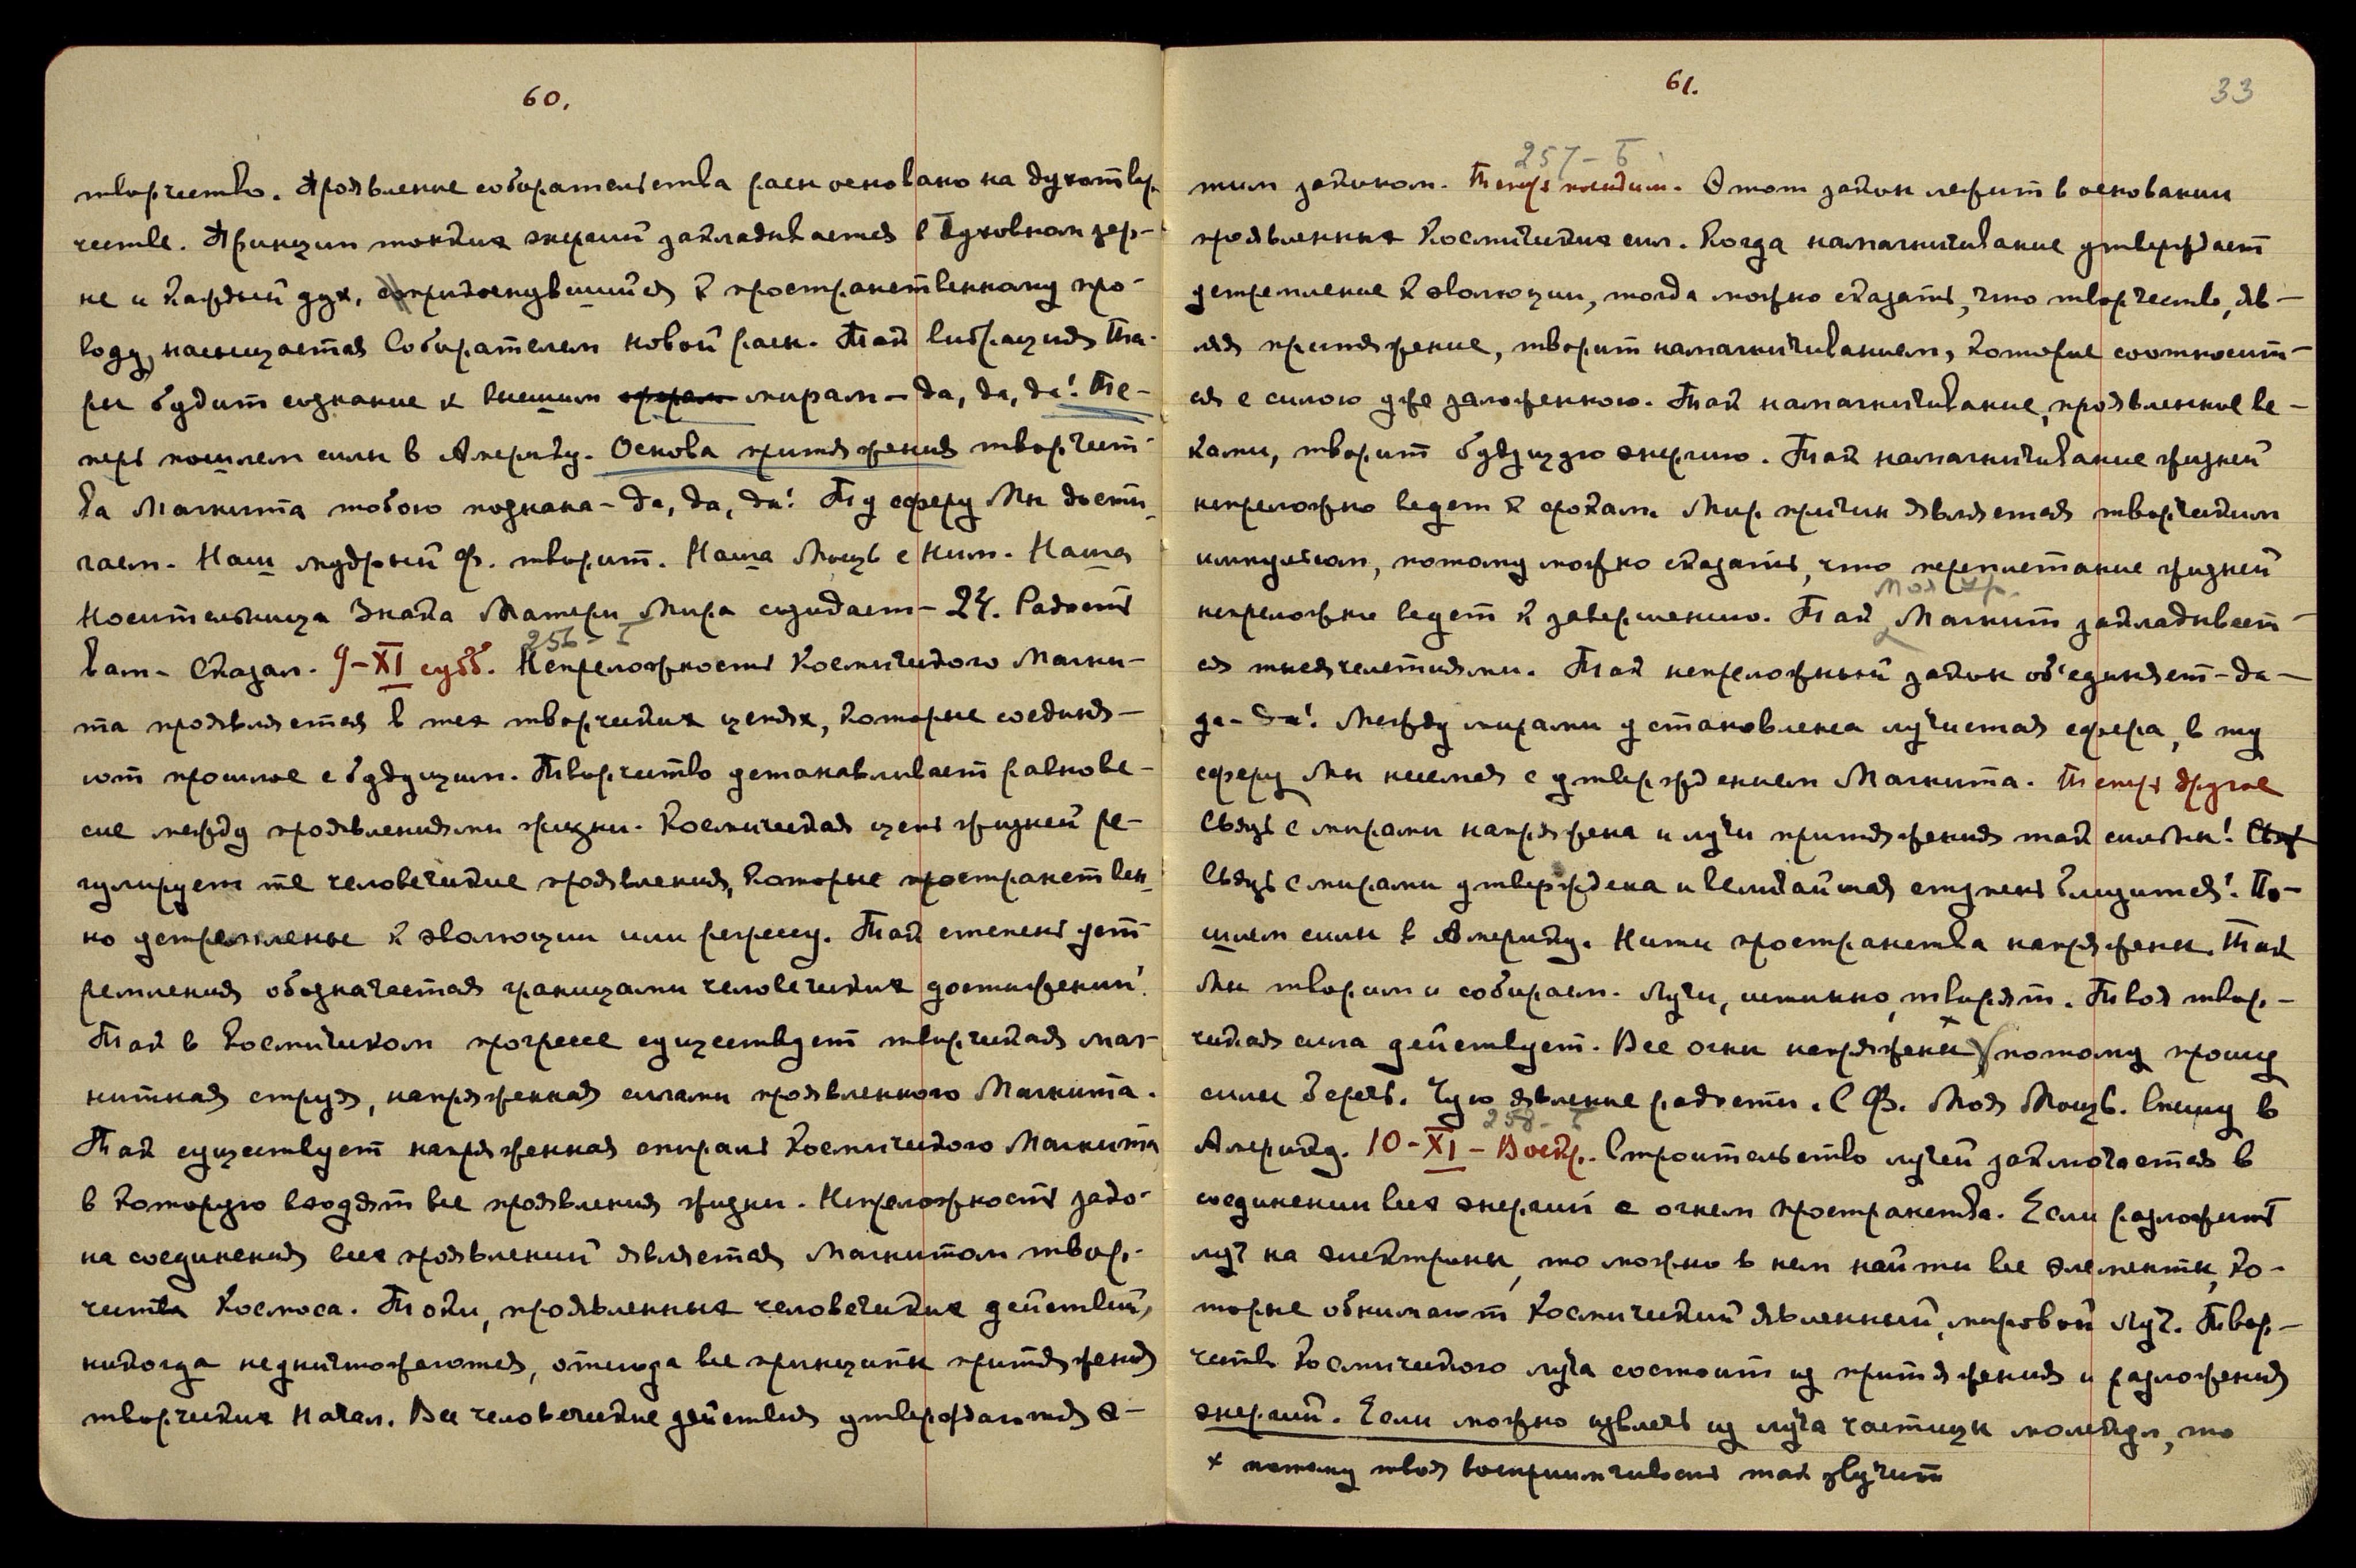 60.
творчество. Проявление собирательства расы основано на духотвор-
честве. Принцип тонких энергий закладывается в духовном зер-
не и каждый дух, соприкоснувшийся к пространственному про-
воду, насыщается Собирателем новой расы. Так вибрация Та-
ры будит сознание к высшим сферам мирам – да, да, да! Те-
перь пошлем силы в Америку. Основа притяжения творчест-
ва Магнита тобою познана – да, да, да! Ту сферу Мы дости-
гаем. Наш мудрый Ф. творит. Наша Мощь с Ним. Наша
Носительница Знака Матери Мира созидает – 24. Радость
вам. Сказал. 9–XI субб. Непреложность Космического Магни-
256 – Б
та проявляется в тех творческих цепях, которые соединя-
ют прошлое с будущим. Творчество устанавливает равнове-
сие между проявлениями жизни. Космическая цепь жизней ре-
гулирует те человеческие проявления, которые пространствен-
но устремлены к эволюции или регрессу. Так степень уст-
ремления обозначается границами человеческих достижений.
Так в Космическом прогрессе существует творческая маг-
нитная струя, напряженная силами проявленного Магнита.
Так существует напряженная спираль Космического Магнита
в которую входят все проявления жизни. Непреложность зако-
на соединения всех проявлений является Магнитом твор-
чества Космоса. Токи, проявленных человеческих действий,
никогда не уничтожаются, отсюда все принципы притяжения
творческих Начал. Все человеческие действия утверждаются э-
61.
33
257 – Б
тим законом. Теперь посидим. Этот закон лежит в основании
проявленных Космических сил. Когда намагничивание утверждает
устремление к эволюции, тогда можно сказать, что творчество, яв-
ляя притяжение, творит намагничиванием, которое соотносит-
ся с силою уже заложенною. Так намагничивание, проявленное ве-
ками, творит будущую энергию. Так намагничивание жизней
непреложно ведет к срокам. Мир причин является творческим
импульсом, потому можно сказать, что переплетание жизней
непреложно ведет к завершению. Так Магнит закладывает-
ся тысячелетиями. Так непреложный закон об'единяет – да –
да – да! Между мирами установлена лучистая сфера, в ту
сферу Мы несемся с утверждением Магнита. Теперь другое
Связь с мирами напряжена и лучи притяжения так сильны!
Связь с мирами утверждена и величайшая ступень близится! По-
шлем силы в Америку. Нити пространства напряжены. Так
Мы творим и собираем. Лучи, истинно, творят. Твоя твор-
ческая сила действует. Все огни напряжены x потому прошу
силы беречь. Чую явление радости. С Ф. Моя Мощь. Спешу в
Америку. 10–XI – Воскр. Строительство лучей заключается в
258 – Б
соединении всех энергий с огнем пространства. Если разложить
луч на электроны, то можно в нем найти все элементы, ко-
торые обнимают Космический явленный, мировой луч. Твор-
чество Космического луча состоит из притяжения и разложения
энергий. Если можно извлечь из луча частицы молекул, то
x потому твоя восприимчивость так звучит